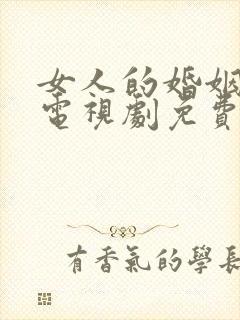 女人的婚姻
電視劇免費
有香氣的學長